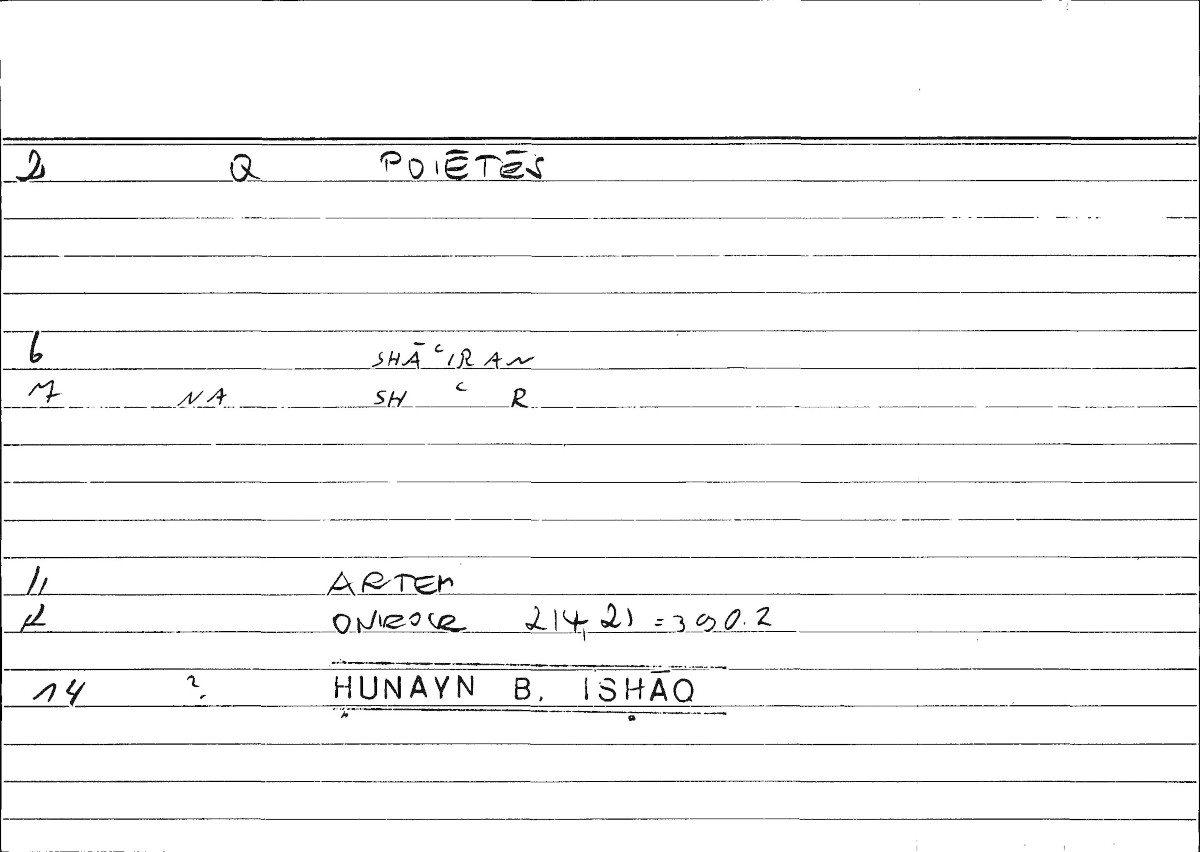 2 Q POIĒTĒS
6 SHĀʿIRAN
7 NA SH ʿ R
11 ARTEM
12 ONIROCR 214,21 = 390.2
14 ? ḤUNAYN B. ISḤĀQ